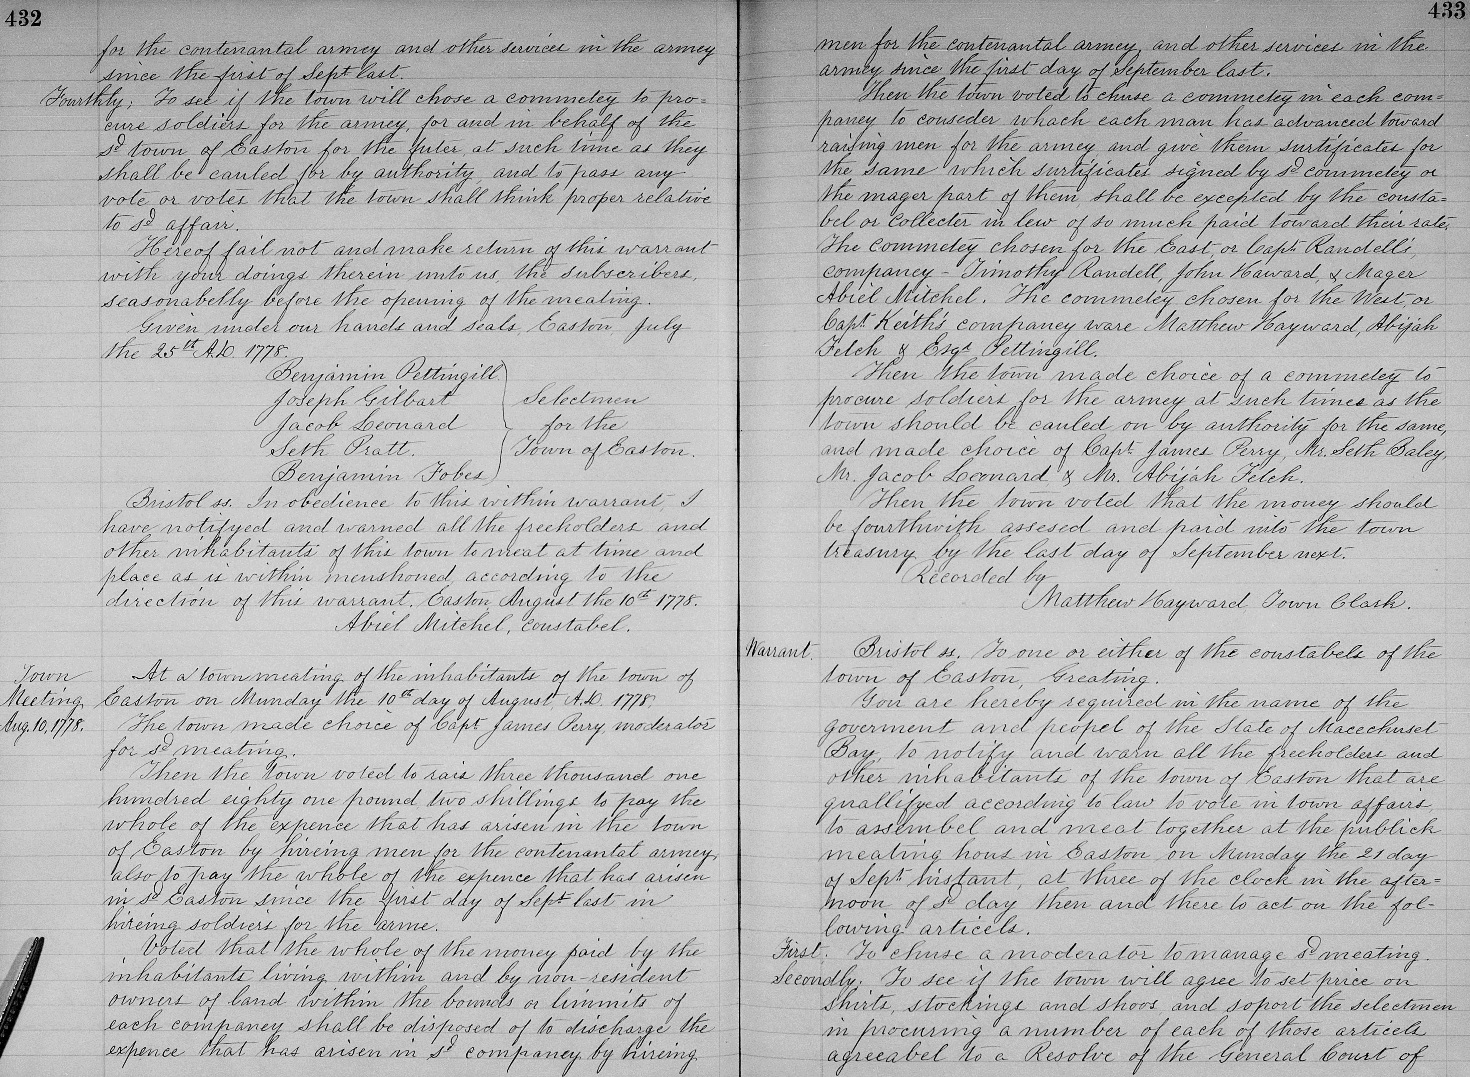 432
for the contenantal armey and other services in the armey
since the first of Sept last.
Fourthly; To see if the town will chose a commetey to pro=
cure soldiers for the army, for and in behalf of the
sd town of Easton for the futer, at such time as they
shall be cauled for by authority, and to pass any
vote or votes that the town shall think proper relative
to sd affair.
Hereof fail not and make return of this warrant
with your doings therein unto us, the subscribers,
seasonabelly before the opening of the meating.
Given under our hands and seals, Easton, July
the 25th A.D. 1778.
Benjamin Pettingill
Joseph Gilbart Selectmen
Jacob Leonard for the
Seth Pratt. Town of Easton.
Benjamin Fobes
Bristol ss. In obedience to this within warrant, I
have notifyed and warned all the freeholders and
other inhabitants of this town to meat at time and
place as is within menshoned, according to the
direction of this warrant. Easton August the 10th 1778.
Abiel Mitchel, constabel.
Town
Meeting,
Aug. 10, 1778.
At a town meating of the inhabitants of the town of
Easton on Munday the 10th day of August, A.D. 1778.
The town made choice of Capt James Perry, moderator
for sd meating.
Then the town voted to rais three thousand one
hundred eighty one pound two shillings to pay the
whole of the expence that has arisen in the town
of Easton by hireing men for the contenantal armey,
also to pay the whole of the expence that has arisen
in sd Easton since the first day of Sept last in
hireing soldiers for the arme.
Voted that the whole of the money paid by the
inhabitants living within and by non-resident
owners of land within the bounds or limmits of
each companey shall be disposed of to discharge the
expence that has arisen in sd companey by hireing
433
men for the contenantal armey, and other services in the
armey since the first day of September last.
Then the town voted to chuse a commetey in each com=
paney to conseder whach each man has advanced toward
raising men for the army and give them surtificates for
the same which surtificates signed by sd commetey or
the mager part of them shall be excepted by the consta=
bel or collecter in lew of so much paid toward their rate,
The commetey chosen for the East, or Capt Randell's,
companey - Timothy Randell, John Haward, & Mager
Abiel Mitchel. The commetey chosen for the West, or
Capt Keith's, companey ware Matthew Hayward, Abijah
Felch & Esqr Pettingill.
Then the town made choice of a commetey to
procure soldiers for the army at such times as the
town should be cauled on by authority for the same,
and made choice of Capt James Perry, Mr. Seth Baley,
Mr. Jacob Leonard & Mr. Abijah Felch.
Then the town voted that the money should
be fourthwith assesed and paid into the town
treasury by the last day of September next.
Recorded by
Matthew Hayward Town Clark.
Warrant. Bristol ss. To one or either of the constabels of the
town of Easton, Greating.
You are hereby required in the name of the
goverment and peopel of the State of Macechuset
Bay, to notify and warn all the freeholders and
other inhabitants of the town of Easton that are
quallifyed according to law to vote in town affairs,
to assembel and meat together at the publick
meating hous in Easton on Munday the 21 day
of Sept instant, at three of the clock in the after=
noon of sd day then and there to act on the fol-
lowing articels.
First. To chuse a moderator to manage sd meating.
Secondly; To see if the town will agree to set price on
shirts, stockings and shoos, and soport the selectmen
in procuring a number of each of those articels
agreeabel to a Resolve of the General Court of